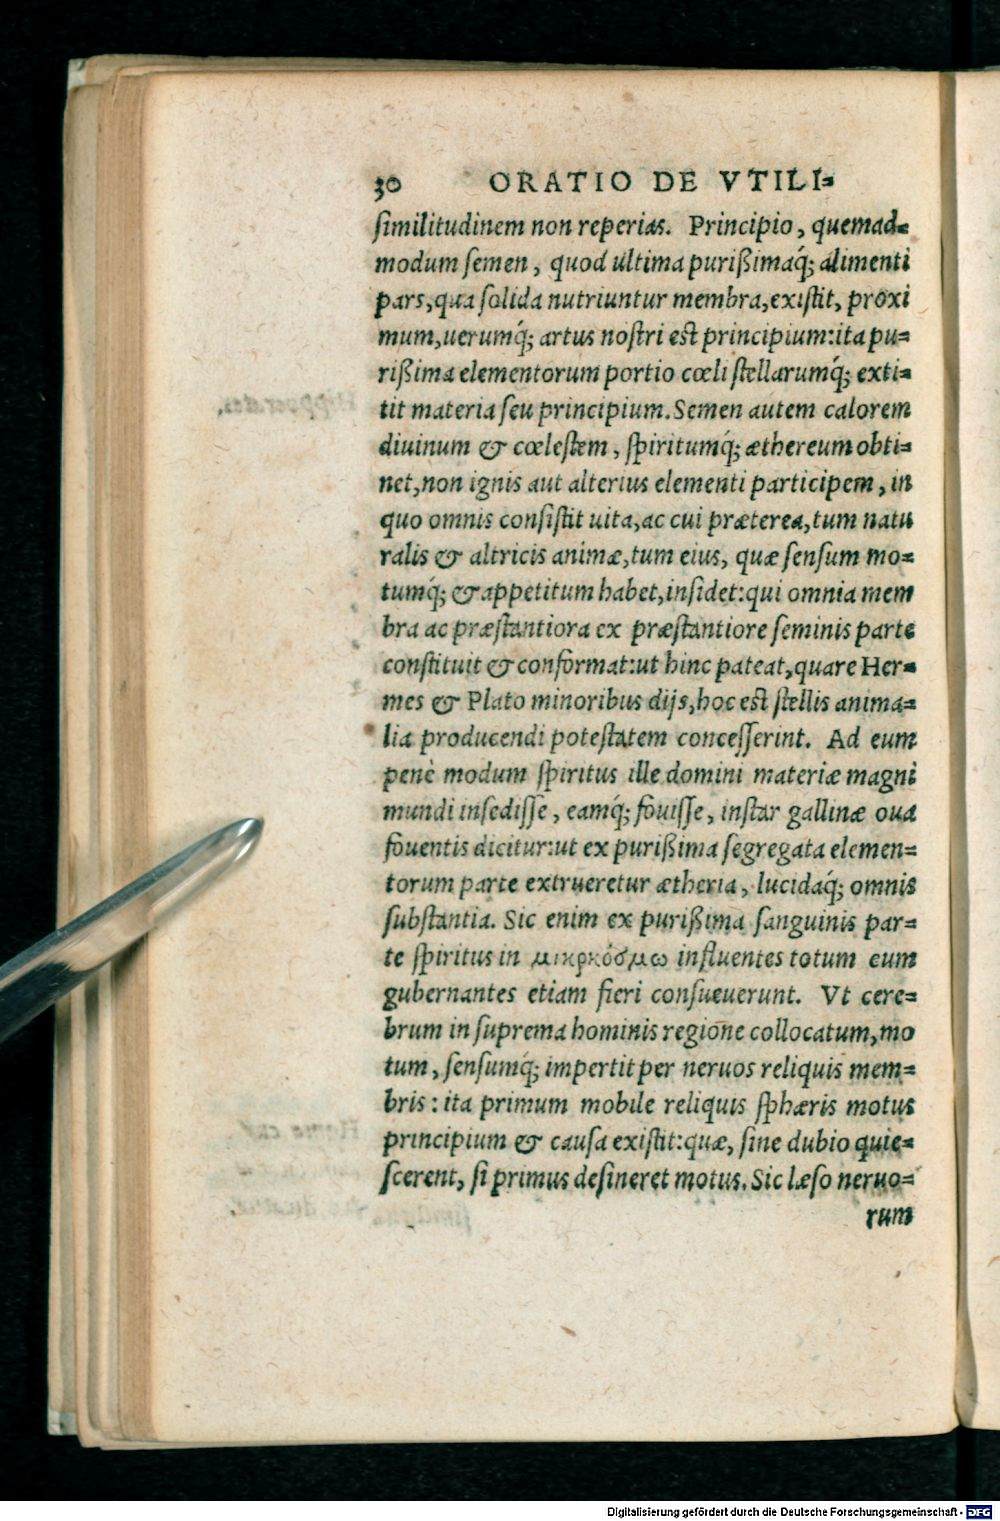 30 ORATIO DE VTILI=
ſimilitudinem non reperias. Principio, quemad=
modum ſemen, quod ultima purißimaq́; alimenti
pars, qua ſolida nutriuntur membra, exiſtit, proxi
mum, uerumq́; artus noſtri eſt principium: ita pu=
rißima elementorum portio cœli ſtellarumq́; exti=
tit materia ſeu principium. Semen autem calorem
diuinum & cœleſtem, ſpiritumq́; æthereum obti=
net, non ignis aut alterius elementi participem, in
quo omnis conſiſtit uita, ac cui præterea, tum natu
ralis & altricis animæ, tum eius, quæ ſenſum mo=
tumq́; & appetitum habet, inſidet: qui omnia mem
bra ac præſtantiora ex præſtantiore ſeminis parte
conſtituit & conformat: ut hinc pateat, quare Her=
mes & Plato minoribus dijs, hoc eſt ſtellis anima=
lia producendi poteſtatem conceſſerint. Ad eum
penè modum ſpiritus ille domini materiæ magni
mundi inſediſſe, eamq́; fouiſſe, inſtar gallinæ oua
fouentis dicitur: ut ex purißima ſegregata elemen=
torum parte extrueretur ætheria, lucidaq́; omnis
ſubſtantia. Sic enim ex purißima ſanguinis par=
te ſpiritus in μικρκόσμω influentes totum eum
gubernantes etiam fieri conſueuerunt. Vt cere=
brum in ſuprema hominis regione collocatum, mo
tum, ſenſumq́; impertit per neruos reliquis mem=
bris: ita primum mobile reliquis ſphæris motus
principium & cauſa exiſtit: quæ, ſine dubio quie=
ſcerent, ſi primus deſineret motus. Sic læſo neruo=
rum
Digitalisierung gefördert durch die Deutsche Forschungsgemeinschaft - DFG